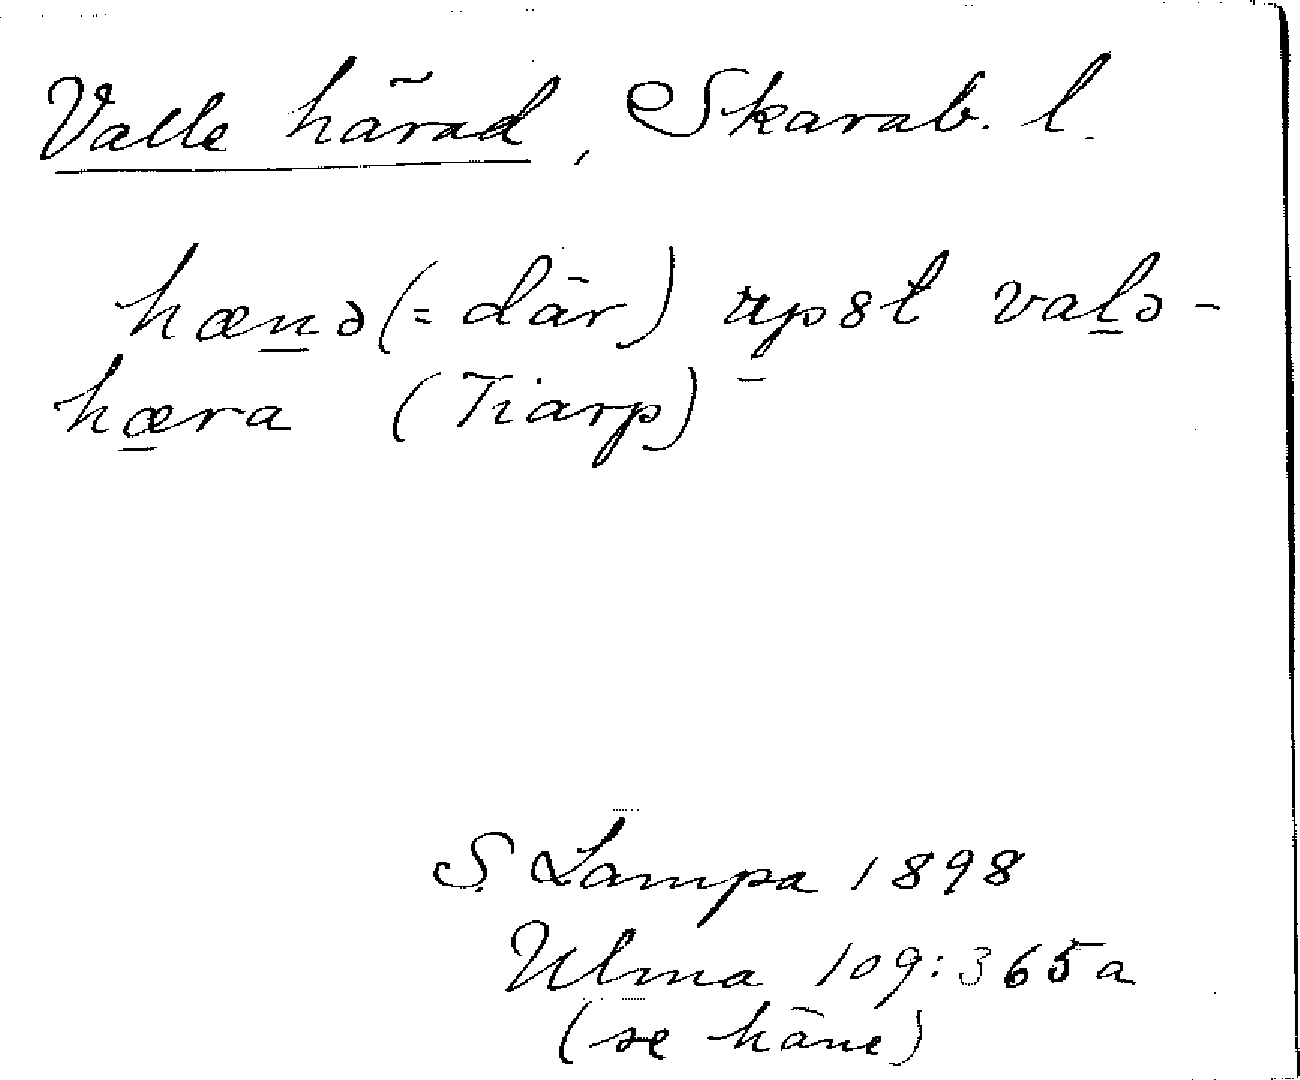 Valle härad, Skarab. l.
hænə (= där) ɯpst valə-
hæra (Kiarp)
S. Lampa 1898
Ulma 109:365a
(se häne)